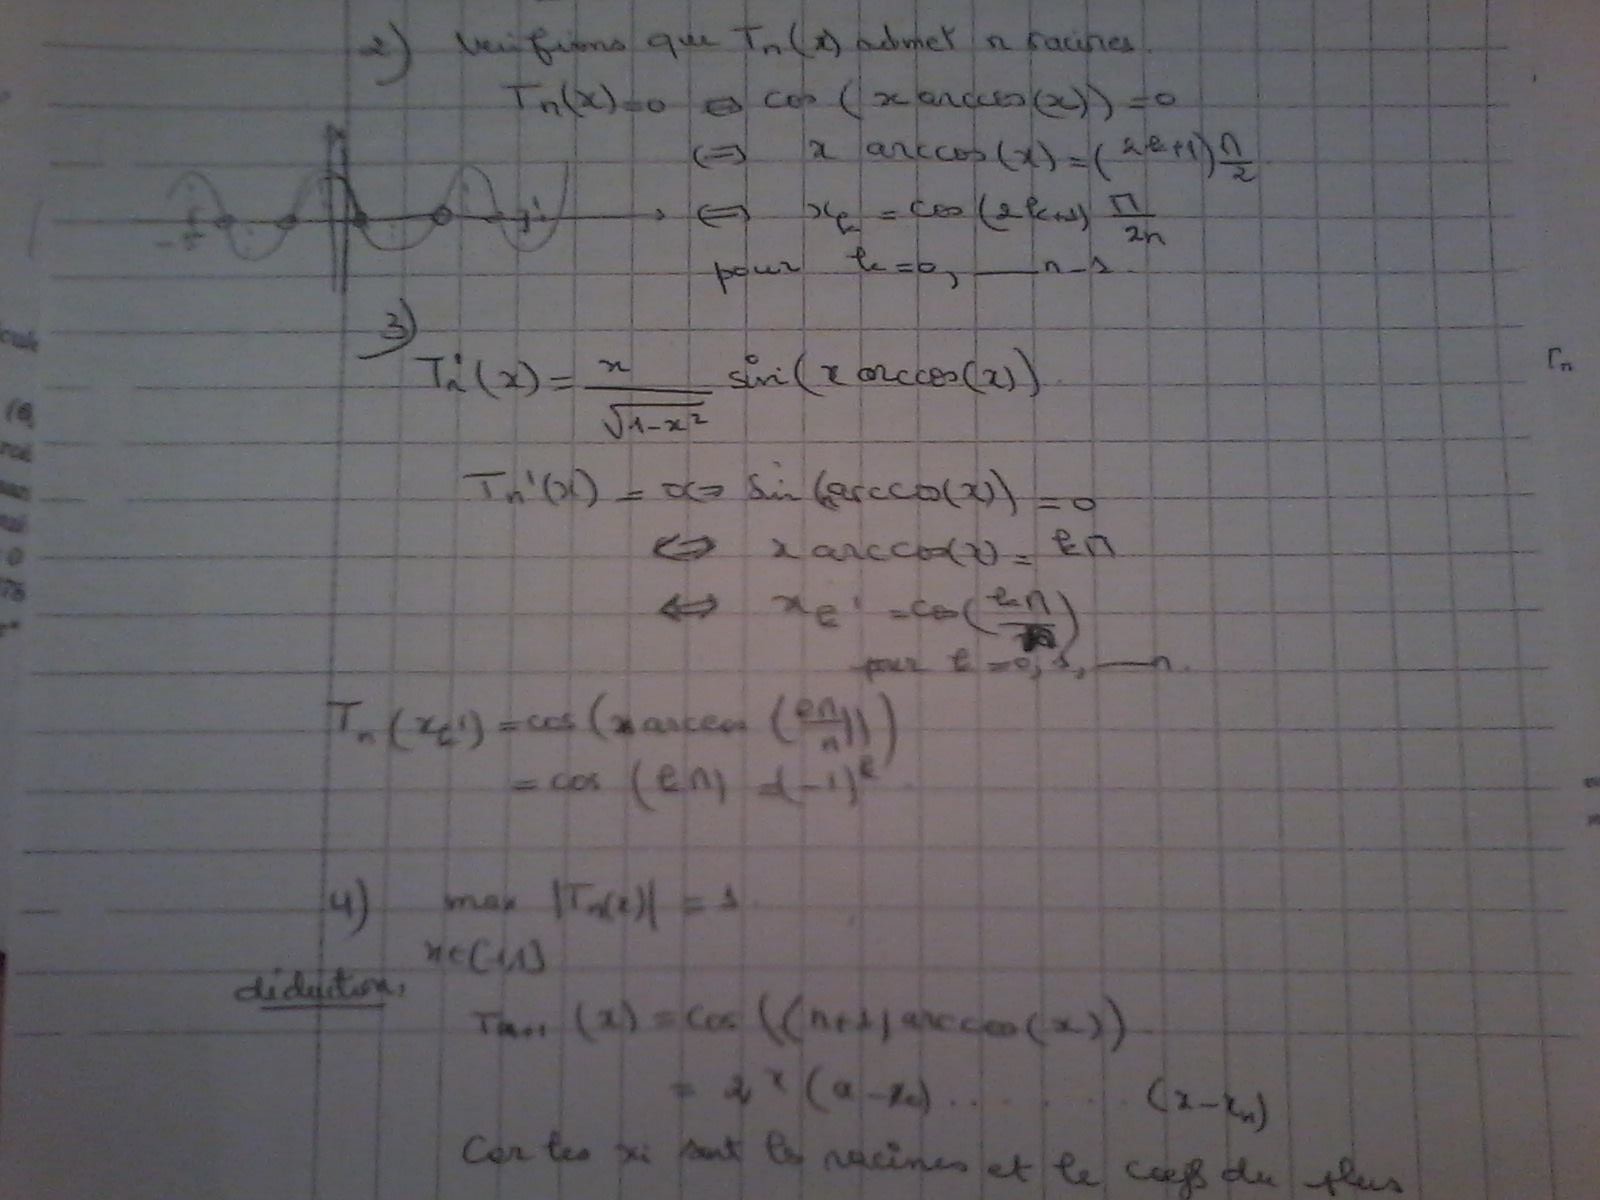 2) Verifions que Tn(x) admet n racines.
Tn(x)=0 ⇔ cos (x arccos(x))=0
⇔ x arccos(x)=(2k+1)π/2
⇔ xk = cos (2k+1) π/2n
pour k=0, —— n-1.
3)
Tn'(x) = n/√(1-x²) sin(x arccos(x)).
Tn'(x) = 0 ⇔ sin (n arccos(x)) = 0
⇔ x arccos(x) = kπ
⇔ xk' = cos(kπ/n)
pour k=0, 1, —— n.
Tn(xk') = cos(x arccos (kπ/n))
= cos (kπ) = (-1)^k.
4) max |Tn(x)| = 1
x∈[-1,1]
déduction,
Tn+1 (x) = cos ((n+1) arccos(x))
= 2^x (x-x0) . . . . . . (x-xn)
Car les xi sont les racines et le coeff du plus
Tn